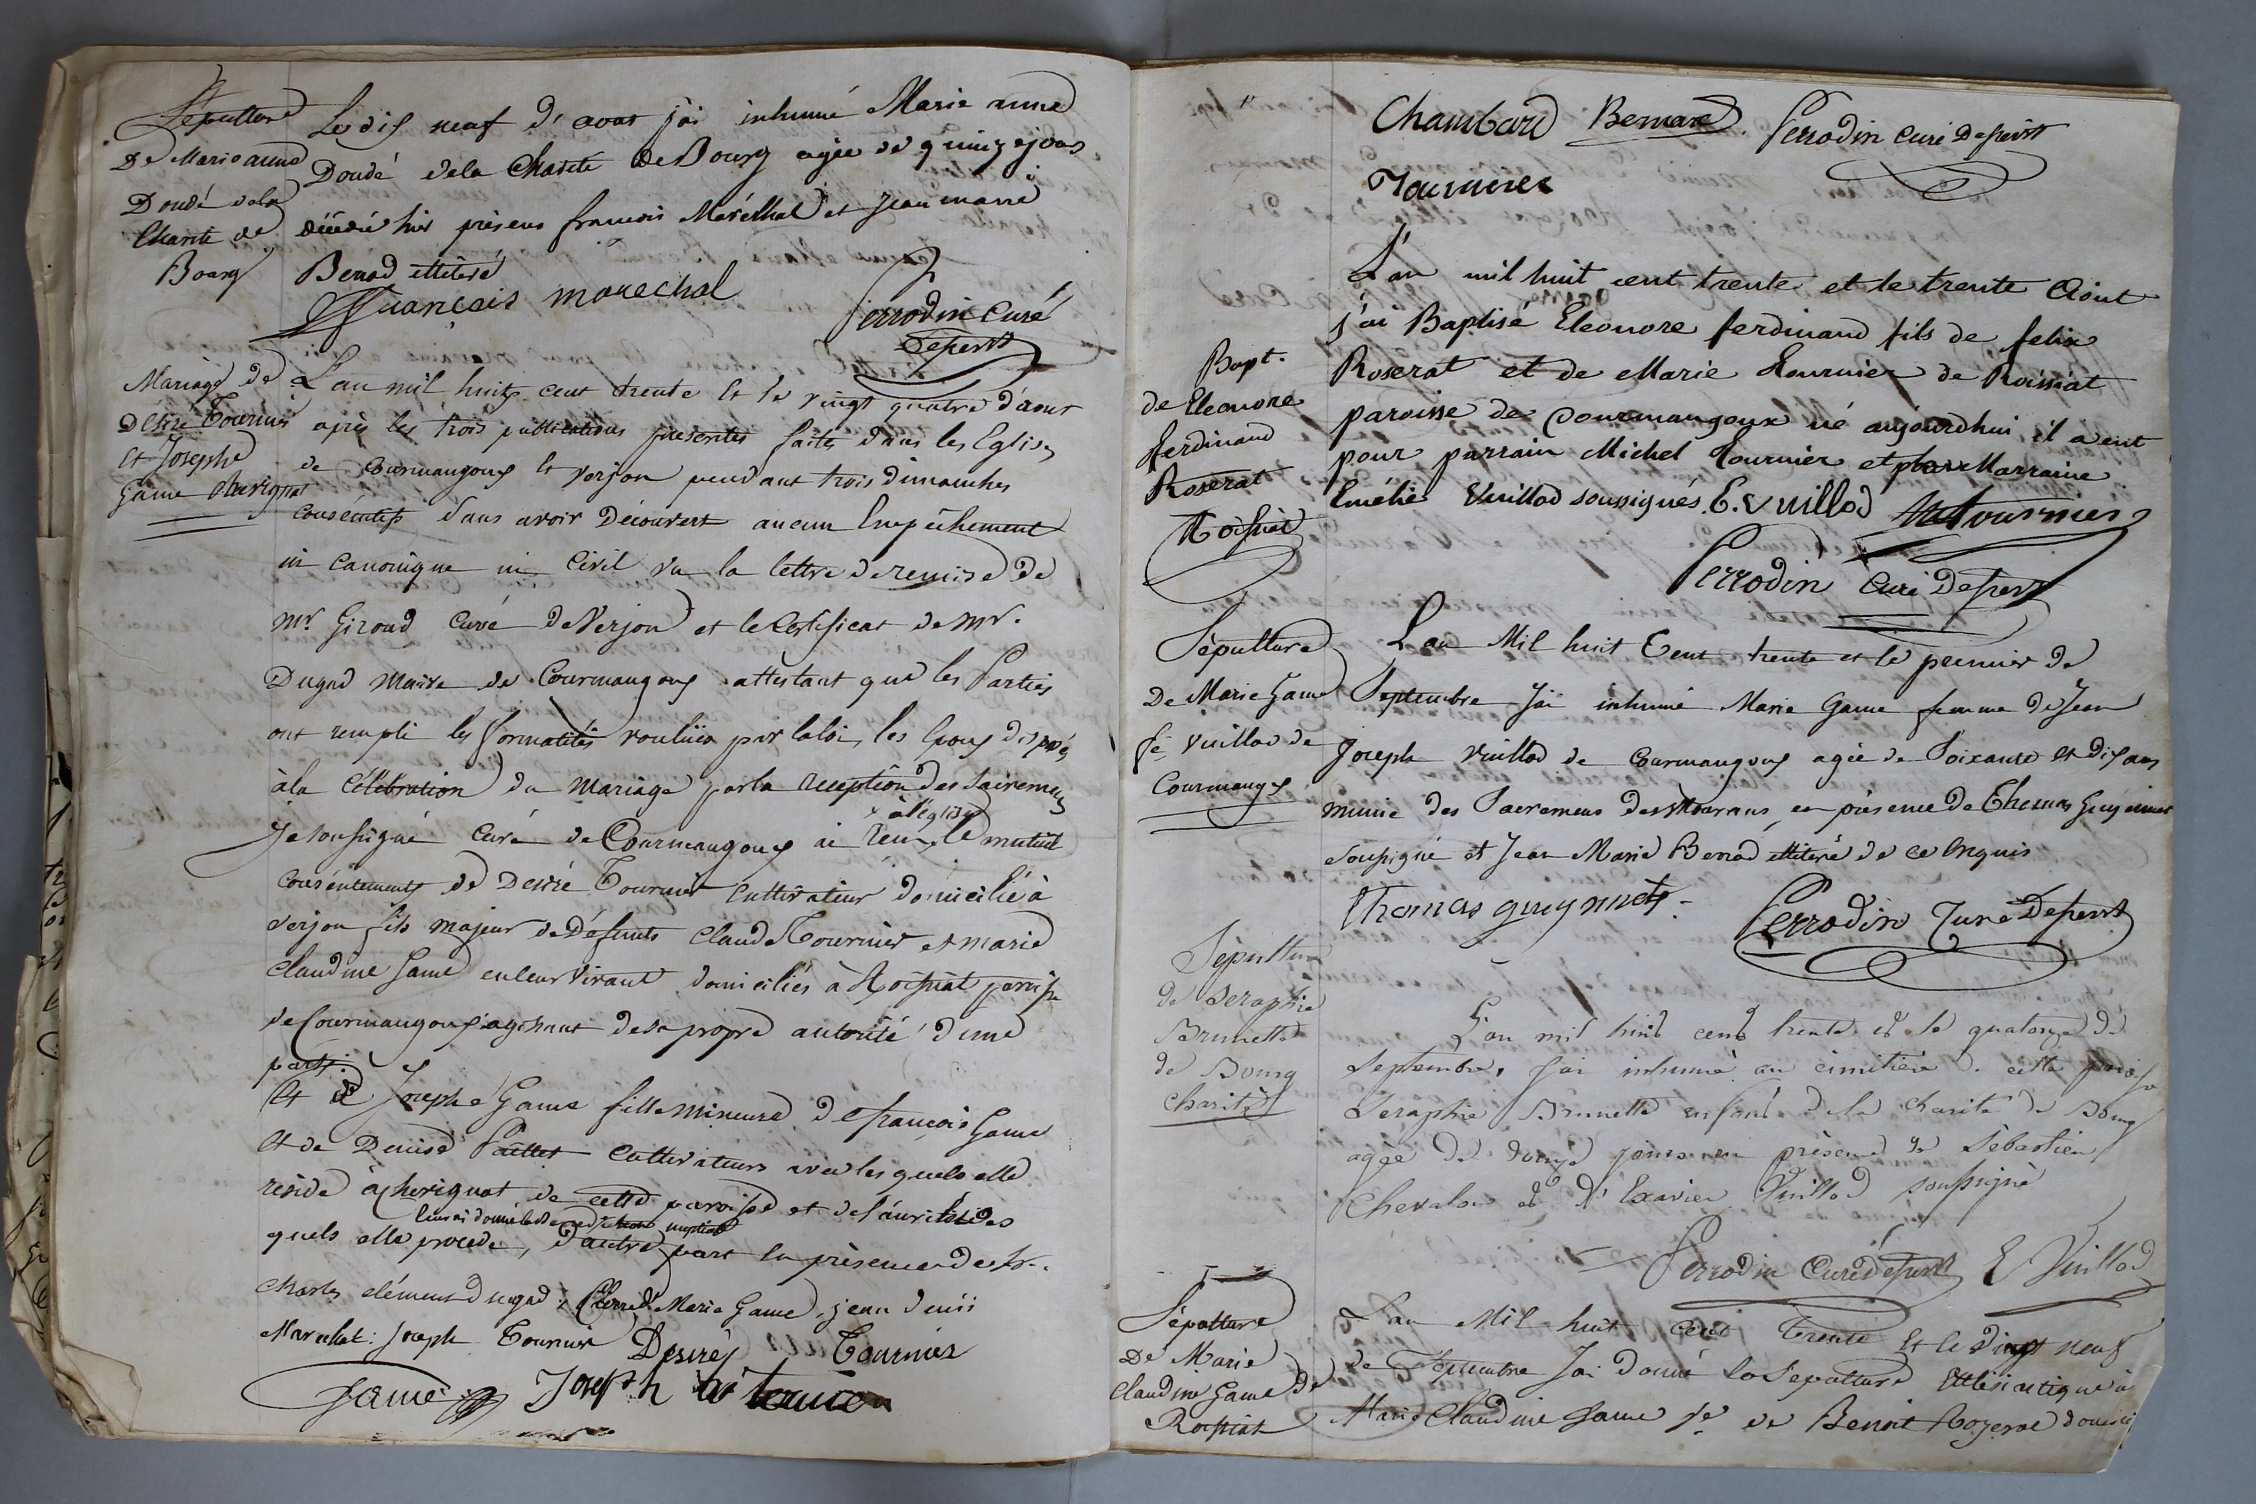 Sépulture
De Marie anne
Doudé de la
Charité de
Bourg
Le dix neuf d'aout j'ai inhumé Marie anne
Doudé de la Charité de Bourg agée de quinze jours
décédée hier présens francois Maréchal et Jean marie
Benod illitéré
François marechal
Perrodin Curé
Desserv
Mariage de
Désiré Tournier
et Josephe
Game
L'an mil huit cent trente et le vingt quatre d'aout
après les trois publications faites dans les Eglises
de Courmangoux et verjon pendant trois dimanches
consécutifs sans avoir Découvert aucun Empêchement
ni canonique ni Civil vu la lettre de remise de
mr. Giroud curé de Verjon et le Certificat de mr.
Dugad Maire de Courmangoux attestant que les Parties
ont rempli les formalités voulues par la loi, les Epoux disposés
à la célébration du mariage par la reception des Sacremens
x à l'église
je soussigné Curé de Courmangoux ai Reçu le mutuel
consentements de Desiré Tournier Cultivateur domicilié à
verjon fils majeur de Défunts Claude Tournier et marie
Claudine Game en leur vivant domiciliés à Roissiat paroisse
de Courmangoux agissant de sa propre autorité d'une
part:
Et de Josephe Game fille mineure de françois Game
et de Denise Paillet Cultivateurs avec lesquels elle
réside à cherignat de cette paroisse et de l'autorité des
leur ai donné la bénédiction nuptiale
quels elle procede, d'autre part en présence de Mr.
Charles clément dugad, Pierre Marie Game, jean denis
Marechal: joseph Tournier Desiréj Tournier
Game Joseph
Chambard Bernard Perrodin curé Desservt
Tournier
Bapt.
de Eleonore
ferdinand
Roserat
Roissiat
L'an mil huit cent trente et le trente Aout
j'ai Baptisé Eleonore ferdinand fils de felix
Roserat et de Marie Tournier de Roissiat
paroisse de Courmangoux né aujourdhui, il a eut
pour parrain Michel Tournier et pour Marraine
Emélie Vuillod soussignés. E. vuillod M Tournier
Perrodin Curé Desserv
Sépulture
De Marie Game
fe. Vuillod de
Courmangx
L'an Mil huit Cent trente et le premier de
Septembre J'ai inhumé Marie Game femme de Jean
joseph Vuillod de Courmangoux agée de Soixante et dix ans
munie des Sacremens des Mourans, en présence de Thomas Guyennet
soussigné et Jean Marie Benod illitéré de ce Enquis
thomas gueynnet
Perrodin Curé Desservt
Sépulture
de Seraphie
Brunette
de Bourg
charité
L'an mil huit cent trente et le quatorze de
Septembre, J'ai inhumé au cimitière. cette paroisse
Seraphie Brunette enfant de la charité de Bourg
agée de douze jours en présence de Sébastien
Chevalon et d' Exavier Vuillod soussigné
Perrodin Curé Desservt E Vuillod
Sépulture
De Marie
Claudine Game de
Roissiat
L'an Mil huit cent trente et le vingt neuf
de Septembre J'ai donné la Sépulture Ecclésiastique à
Marie Claudine Game fe. de Benoit